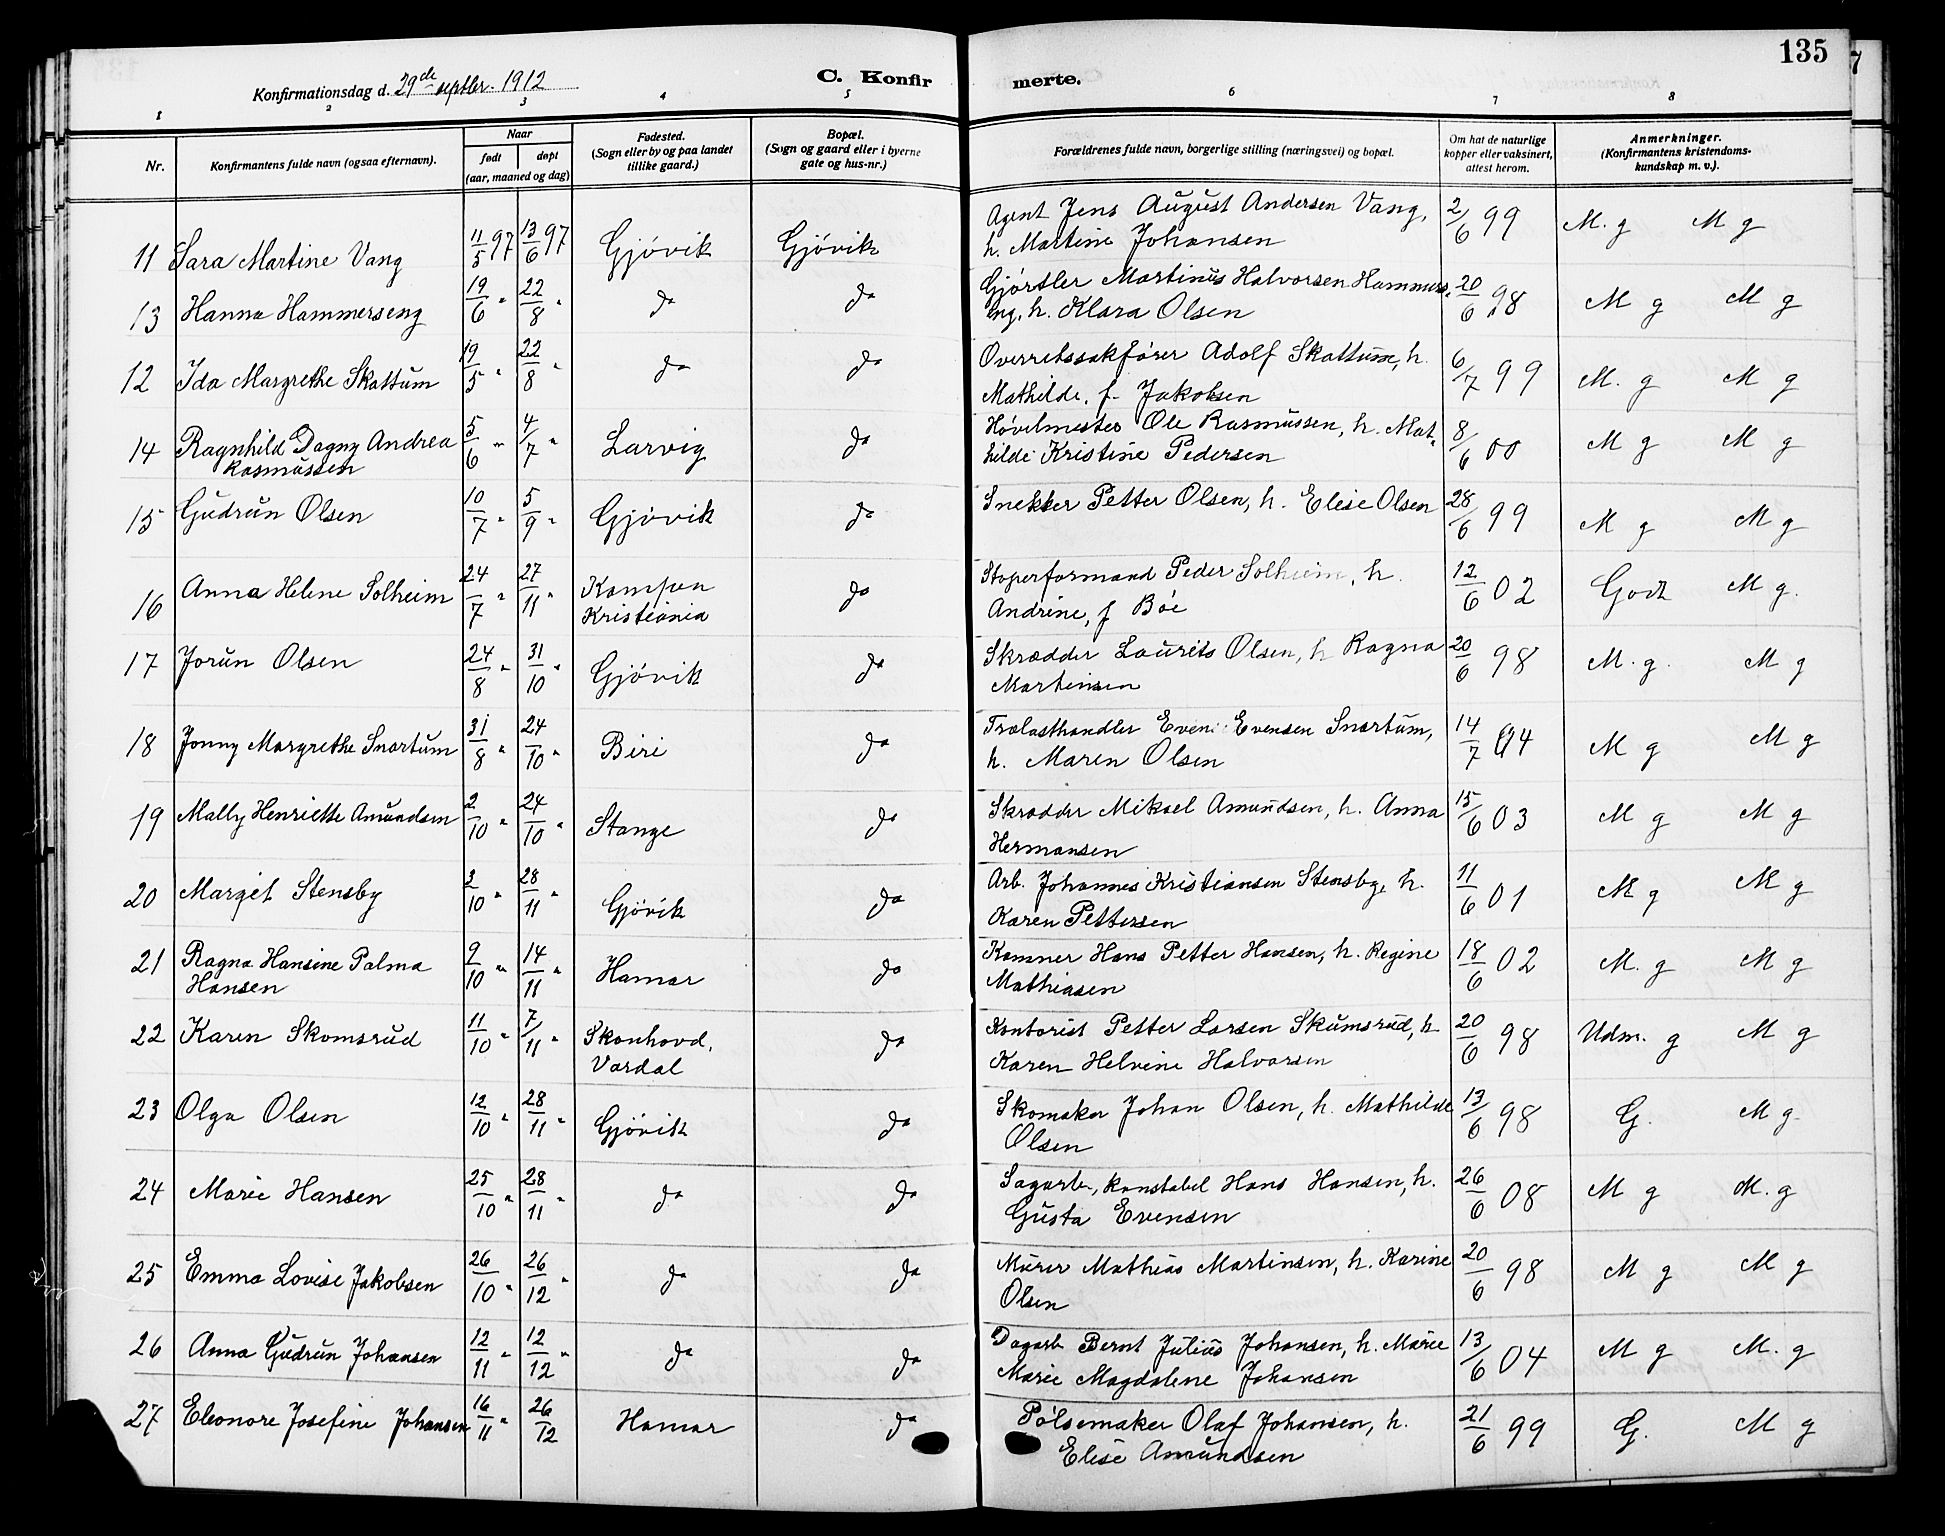 135
Konfirmationsdag d. 29de septbr. 1912
C. Konfir merte.
1 2 3 4 5 6 7 8
Nr.
Konfirmantens fulde navn (ogsaa efternavn).
Naar
født døpt
(aar, maaned og dag)
Fødested.
(Sogn eller by og paa landet
tillike gaard.)
Bopæl.
(Sogn og gaard eller i byerne
gate og hus-nr.)
Forældrenes fulde navn, borgerlige stilling (næringsvei) og bopæl.
Om hat de naturlige
kopper eller vaksinert,
attest herom.
Anmerkninger.
(Konfirmantens kristendoms-
kundskap m. v.).
Agent Jens August Andersen Vang,
11 Sara Martine Vang 11/5 97 13/6 97 Gjövik Gjövik h. Martine Johansen 2/6 99 M. g M g
Gjörtler Martinus Halvorsen Hammers-
13 Hanna Hammerseng 19/6 " 22/8 " do do eng, h. Klara Olsen 20/6 98 M g M g
Overretssakförer Adolf Skattum, h.
12 Ida Margrethe Skattum 19/5 " 22/8 " do do Mathilde, f. Jakobsen 6/7 99 M. g M g
Hövelmester Ole Rasmussen, h. Mat-
14 Ragnhild Dagny Andrea 5/6 " 4/7 " Larvig do hilde Kristine Pedersen 8/6 00 M g M g
Rasmussen
15 Gudrun Olsen 10/7 " 5/9 " Gjövik do Snekker Petter Olsen, h. Elise Olsen 28/6 99 M g M g
Stoperformand Peder Solheim, h.
16 Anna Helene Solheim 24/7 " 27/11 " Kampen do Andrine, f Böe 12/6 02 Godt M g.
Kristiania
17 Jorun Olsen 24/8 " 31/10 " Gjövik do Skrædder Laurits Olsen, h Ragna 20/6 98 M. g. M g
Martinsen
18 Jonny Margrethe Snartum 31/8 " 24/10 " Biri do Trælasthandler Even Evensen Snartum, 14/7 04 M g M g
h. Maren Olsen
19 Mally Henriette Amundsen 2/10 " 24/10 " Stange do Skrædder Mikael Amundsen, h. Anna 15/6 03 M g M g
Hermansen
20 Margit Stensby 3/10 " 28/11 " Gjövik do Arb. Johannes Kristiansen Stensby, h. 11/6 01 M g M g
Karen Pettersen
21 Ragna Hansine Palma 9/10 " 14/11 " Hamar do Kæmner Hans Petter Hansen, h. Regine 18/6 02 M. g M g
Hansen Mathiasen
22 Karen Skomsrud 11/10 " 7/11 " Skonhovd, do Kontorist Petter Larsen Skumsrud, h 20/6 98 Udm. g M g
Vardal Karen Helvine Halvorsen
23 Olga Olsen 12/10 " 28/11 " Gjövik do Skomaker Johan Olsen, h. Mathilde 13/6 98 G. M g.
Olsen
24 Marie Hansen 25/10 " 28/11 " do do Sagarb., konstabel Hans Hansen, h. 26/6 08 M g M. g
Gusta Evensen
25 Emma Lovise Jakobsen 26/10 " 26/12 " do do Murer Mathias Martinsen, h. Karine 20/6 98 M g M g
Olsen
26 Anna Gudrun Johansen 12/11 " 12/12 " do do Dagarb Bernt Julius Johansen, h. Marie 13/6 04 M g M. g
Marie Magdalene Johansen
27 Eleonore Josefine Johansen 16/11 " 26/12 Hamar do Pölsemaker Olaf Johansen, h. 21/6 99 G. M g
Elise Amundsen